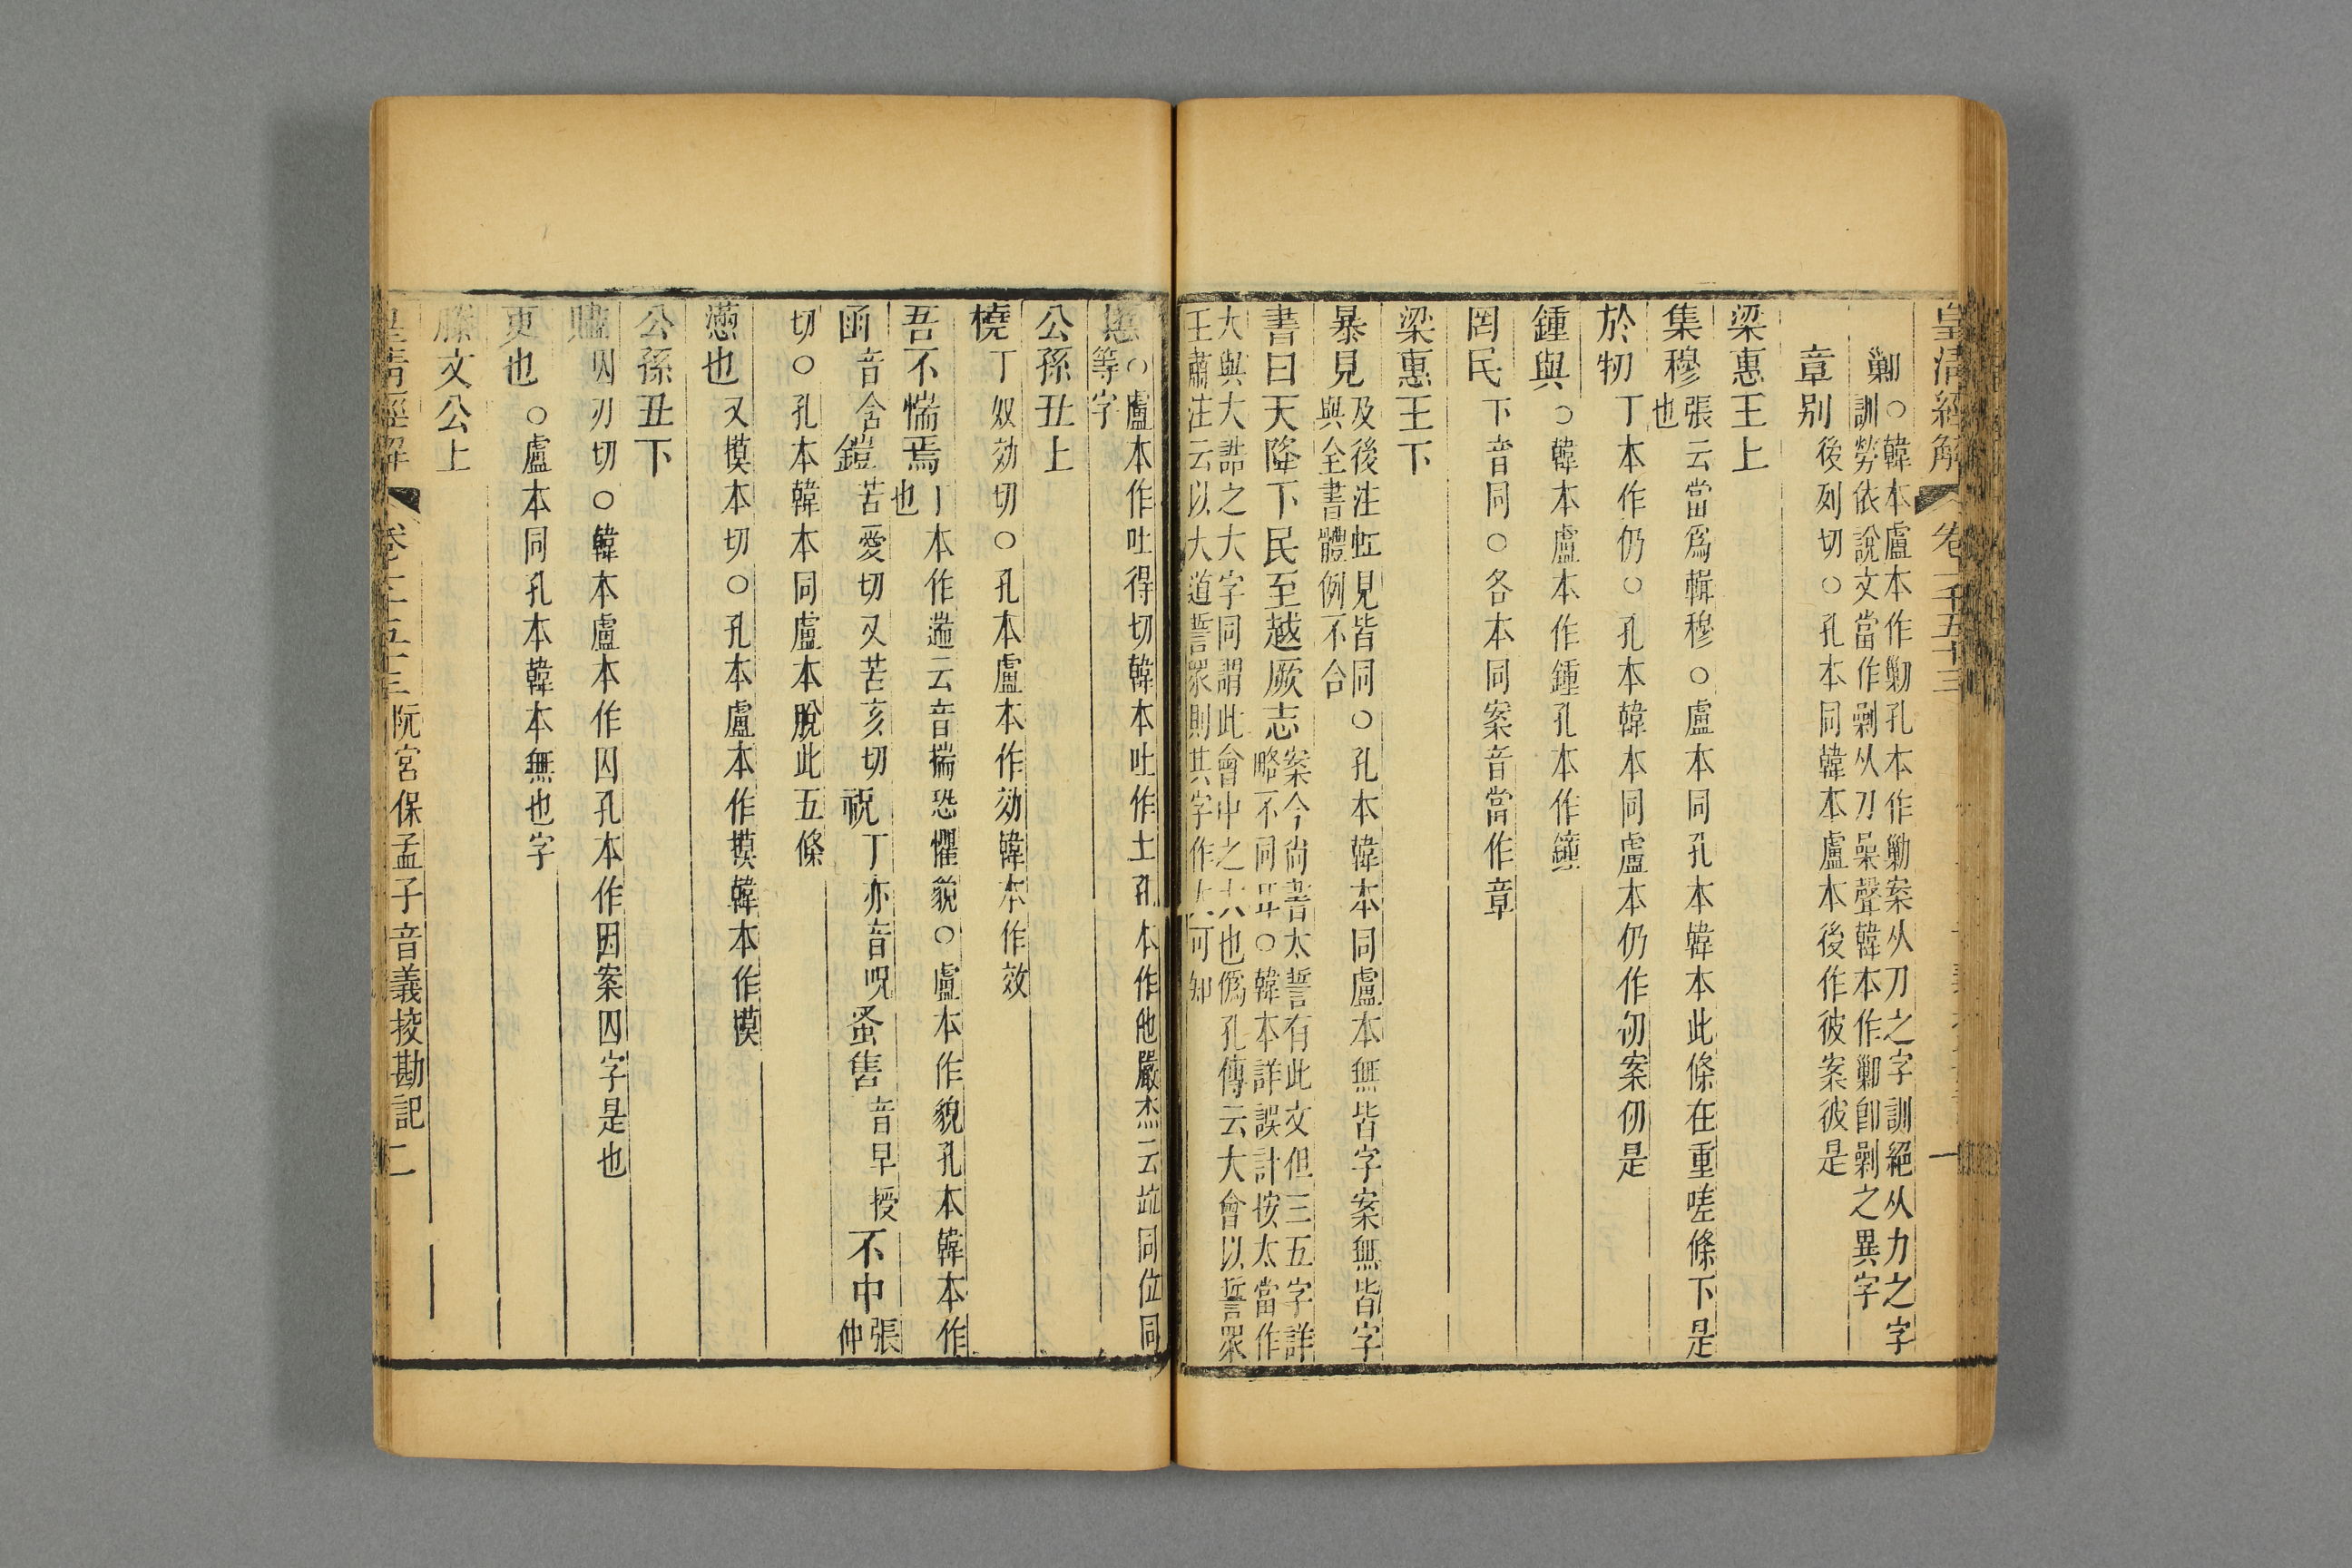 皇清經解 卷一千五十三 一
勦○韓本盧本作勦孔本作勦案从刀之字訓絕从力之字
訓勞依說文當作剿从刀喿聲韓本作勦卽剿之異字
章別後列切○孔本同韓本盧本後作彼案彼是
梁惠王上
集穆張云當爲輯穆○盧本同孔本韓本此條在重嗟條下是
也
於牣丁本作仍○孔本韓本同盧本仍作仞案仞是
鍾與○韓本盧本作鍾孔本作鐘
罔民下音同○各本同案音當作章
梁惠王下
暴見及後注虹見皆同○孔本韓本同盧本無皆字案無皆字
與全書體例不合
書曰天降下民至越厥志案今尚書太誓有此文但三五字詳
略不同耳○韓本詳誤計按太當作
大與大誥之大字同謂此會中之大也僞孔傳云大會以誓眾
王肅注云以大道誓眾則其字作大可知
慝○盧本作吐得切韓本吐作土孔本作他嚴杰云竝同位同
等字
公孫丑上
橈丁奴効切○孔本盧本作効韓本作效
吾不惴焉丁本作遄云音揣恐懼貌○盧本作貌孔本韓本作
也
函音含鎧苦愛切又苦亥切祝丁亦音呪蚤售音早授不中張
仲
切○孔本韓本同盧本脫此五條
懣也又摸本切○孔本盧本作摸韓本作摸
公孫丑下
贐囚刃切○韓本盧本作囚孔本作因案囚字是也
更也○盧本同孔本韓本無也字
滕文公上
皇清經解 卷千五十三阮宮保孟子音義挍勘記 二